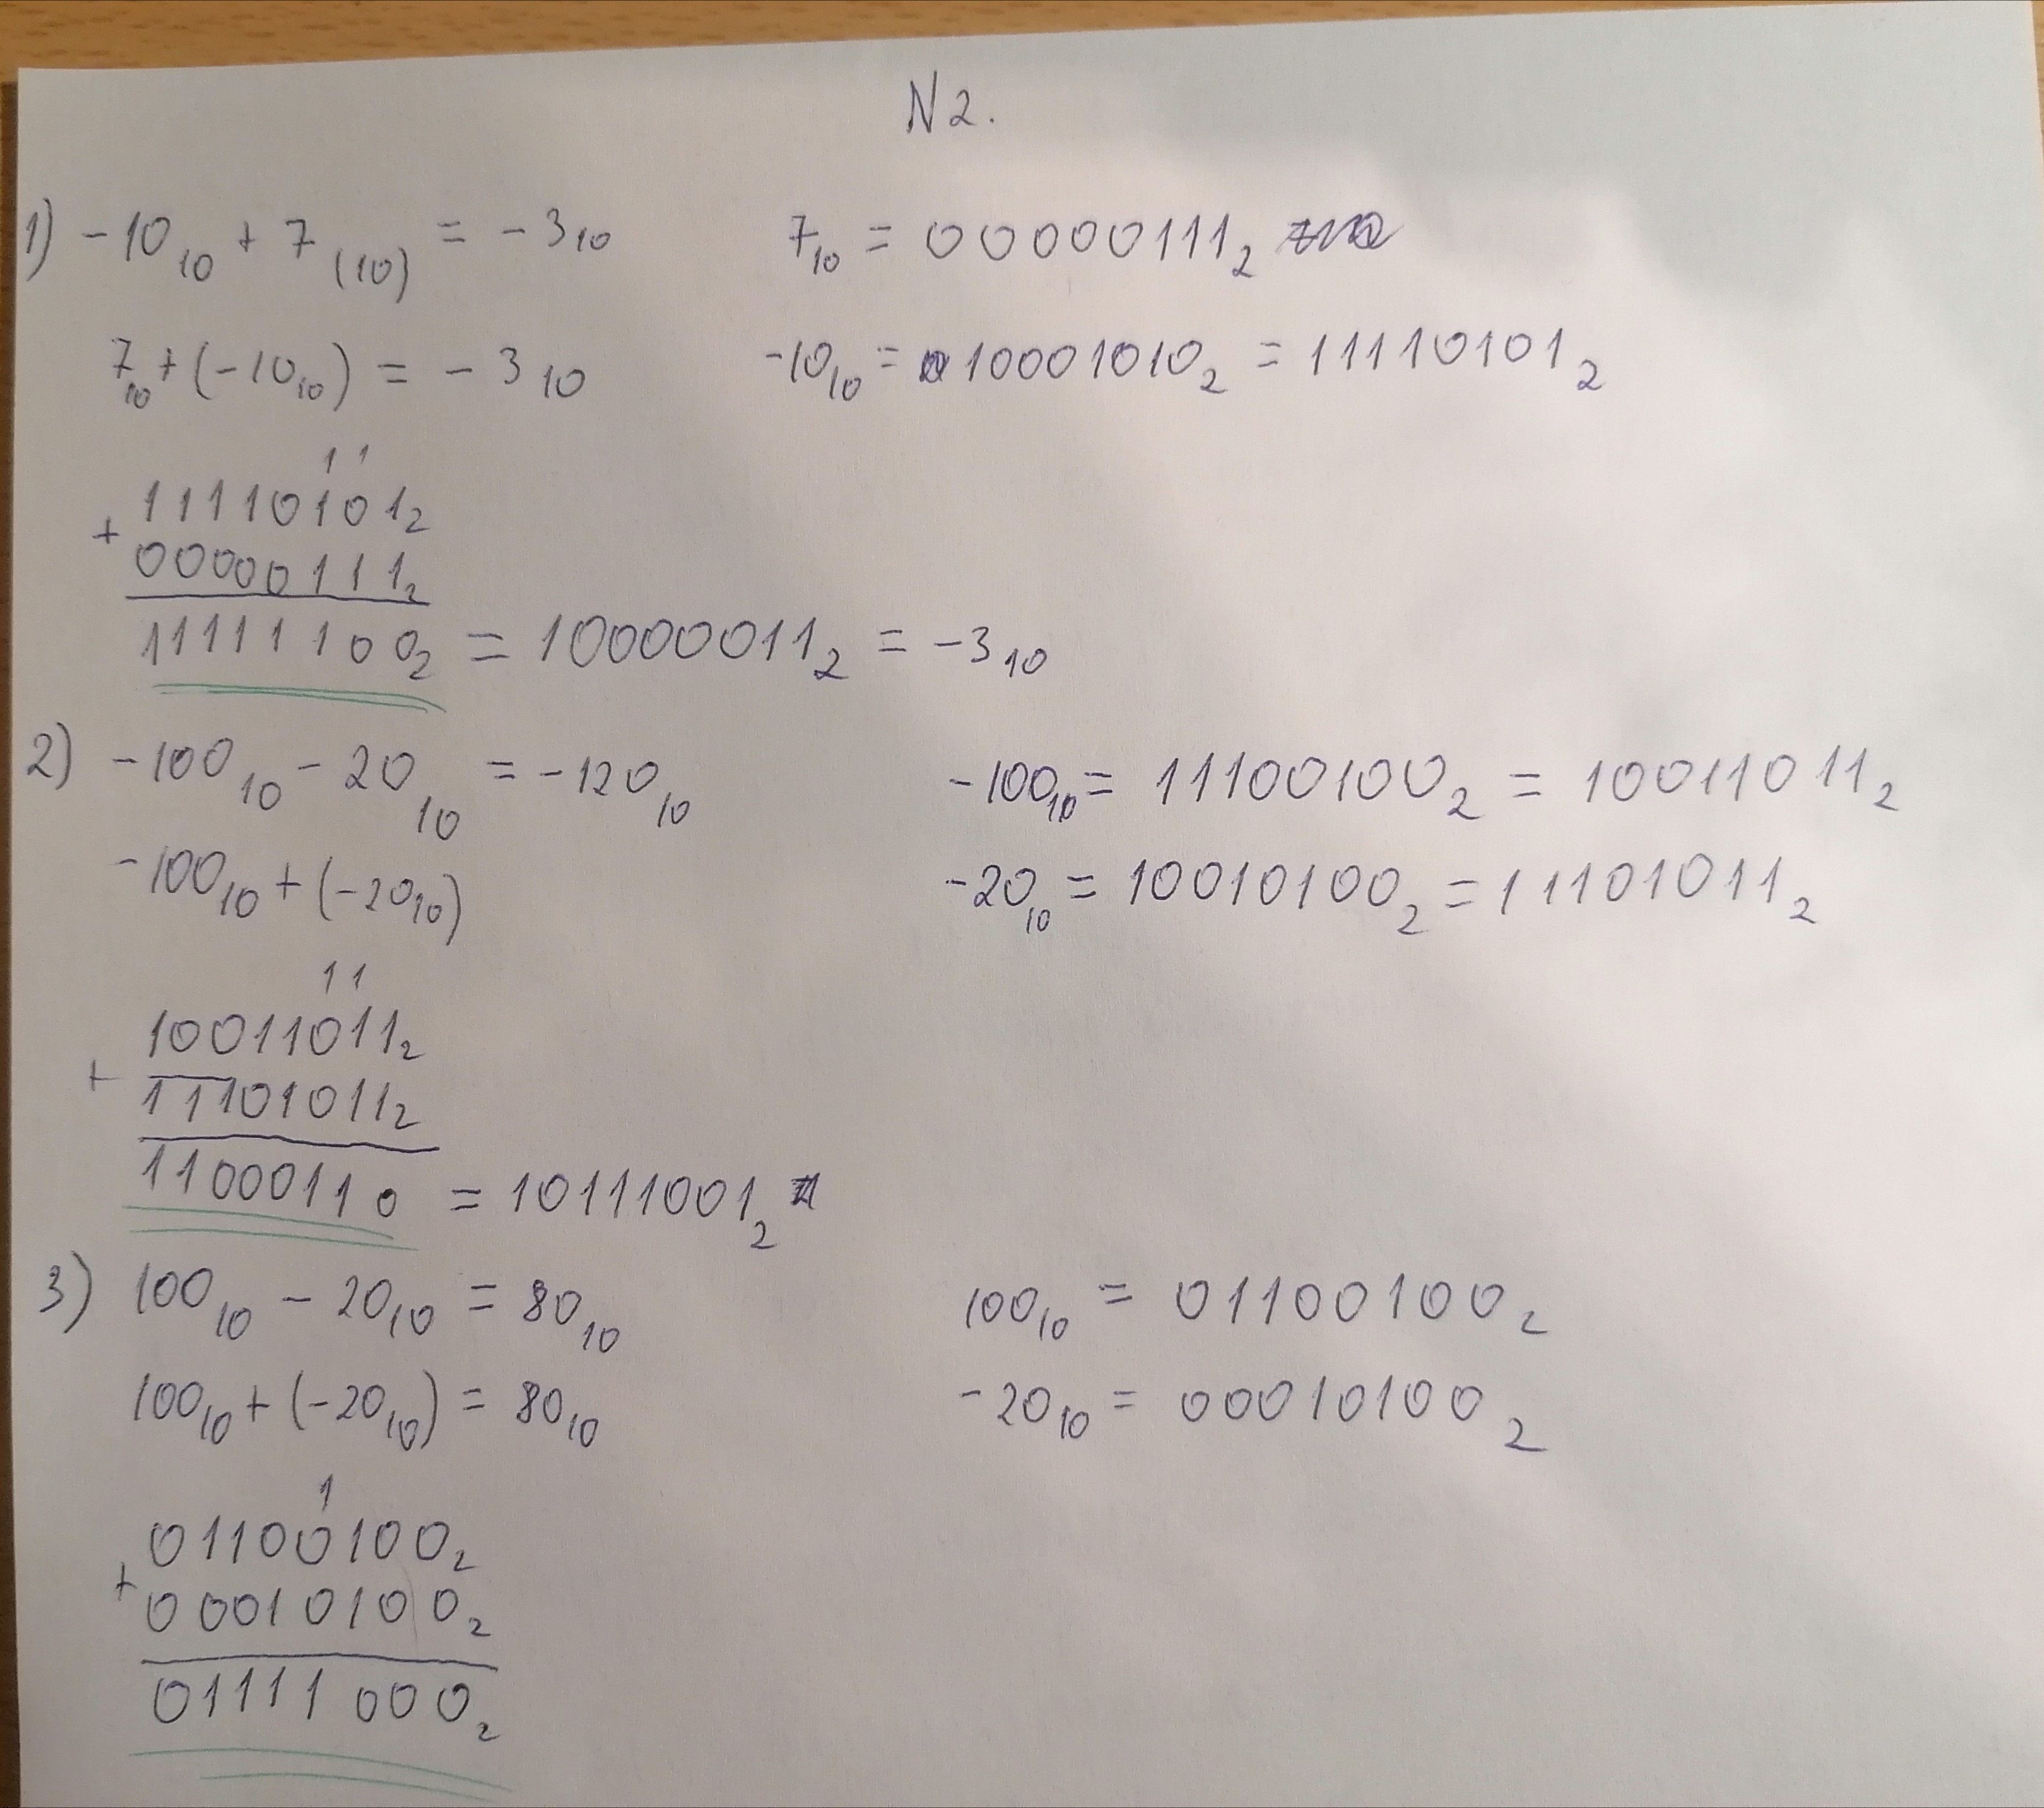 N2.
1) -10₁₀ + 7₍₁₀₎ = -3₁₀ 7₁₀ = 00000111₂
7₁₀+(-10₁₀) = -3₁₀ -10₁₀ = 10001010₂ = 11110101₂
1 1
11110101₂
+
00000111₂
11111100₂ = 10000011₂ = -3₁₀
2) -100₁₀ - 20₁₀ = -120₁₀ -100₁₀ = 11100100₂ = 10011011₂
-100₁₀ + (-20₁₀) -20₁₀ = 10010100₂ = 11101011₂
1 1
10011011₂
+
11101011₂
11000110 = 10111001₂
3) 100₁₀ - 20₁₀ = 80₁₀ 100₁₀ = 01100100₂
100₁₀ + (-20₁₀) = 80₁₀ -20₁₀ = 00010100₂
1
01100100₂
+
00010100₂
01111000₂